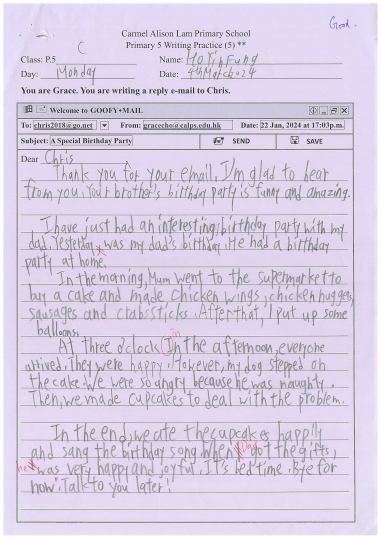 Good.
Carmel Alison Lam Primary School
Primary 5 Writing Practice (5) **
C
Class: P.5 Name: Ho Yin Fung
Day: Monday Date: 4th March 24
You are Grace. You are writing a reply e-mail to Chris.
Welcome to GOOFY♦MAIL
To: chris2018@go.net From: gracecho@calps.edu.hk Date: 22 Jan, 2024 at 17:03p.m.
Subject: A Special Birthday Party SEND SAVE
Dear Chris
Thank you for your email. I'm glad to hear
from you. Your brother's birthday party is funny and amazing.
I have just had an interesting birthday party with my
dad. Yesterday was my dad's birthday. He had a birthday
party at home.
In the morning, Mum went to the supermarket to
buy a cake and made chicken wings, chicken nuggets,
sausages and crab sticks. After that, I put up some
balloons.
in
At three o'clock In the afternoon, everyone
arrived. They were happy. However, my dog stepped on
the cake. We were so angry because he was naughty.
Then, we made cupcakes to deal with the problem.
In the end, we ate the cupcakes happily
and sang the birthday song. When got the gifts,
he was very happy and joyful. It's bedtime. Bye for
now. Talk to you later!